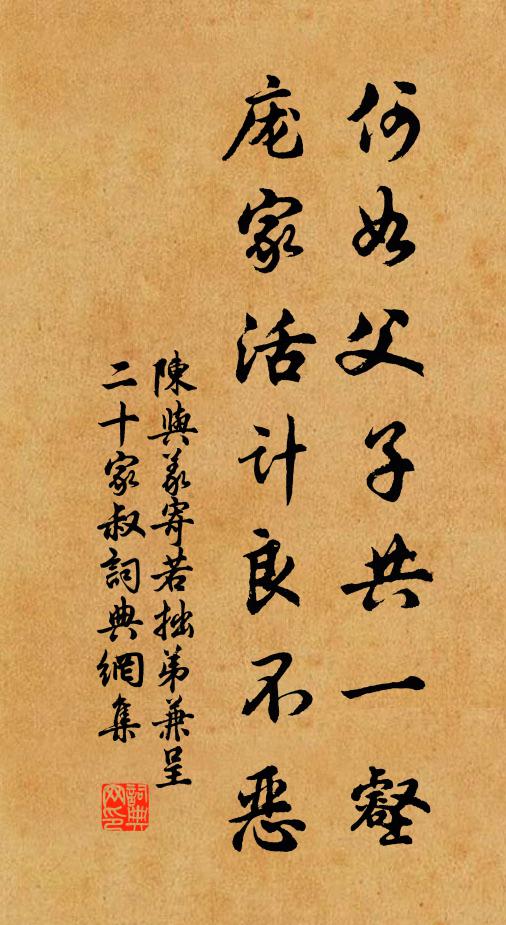 何如父子共一壑
庞家活计良不惡
陳與義寄若拙弟兼呈
二十家叔詞典網集